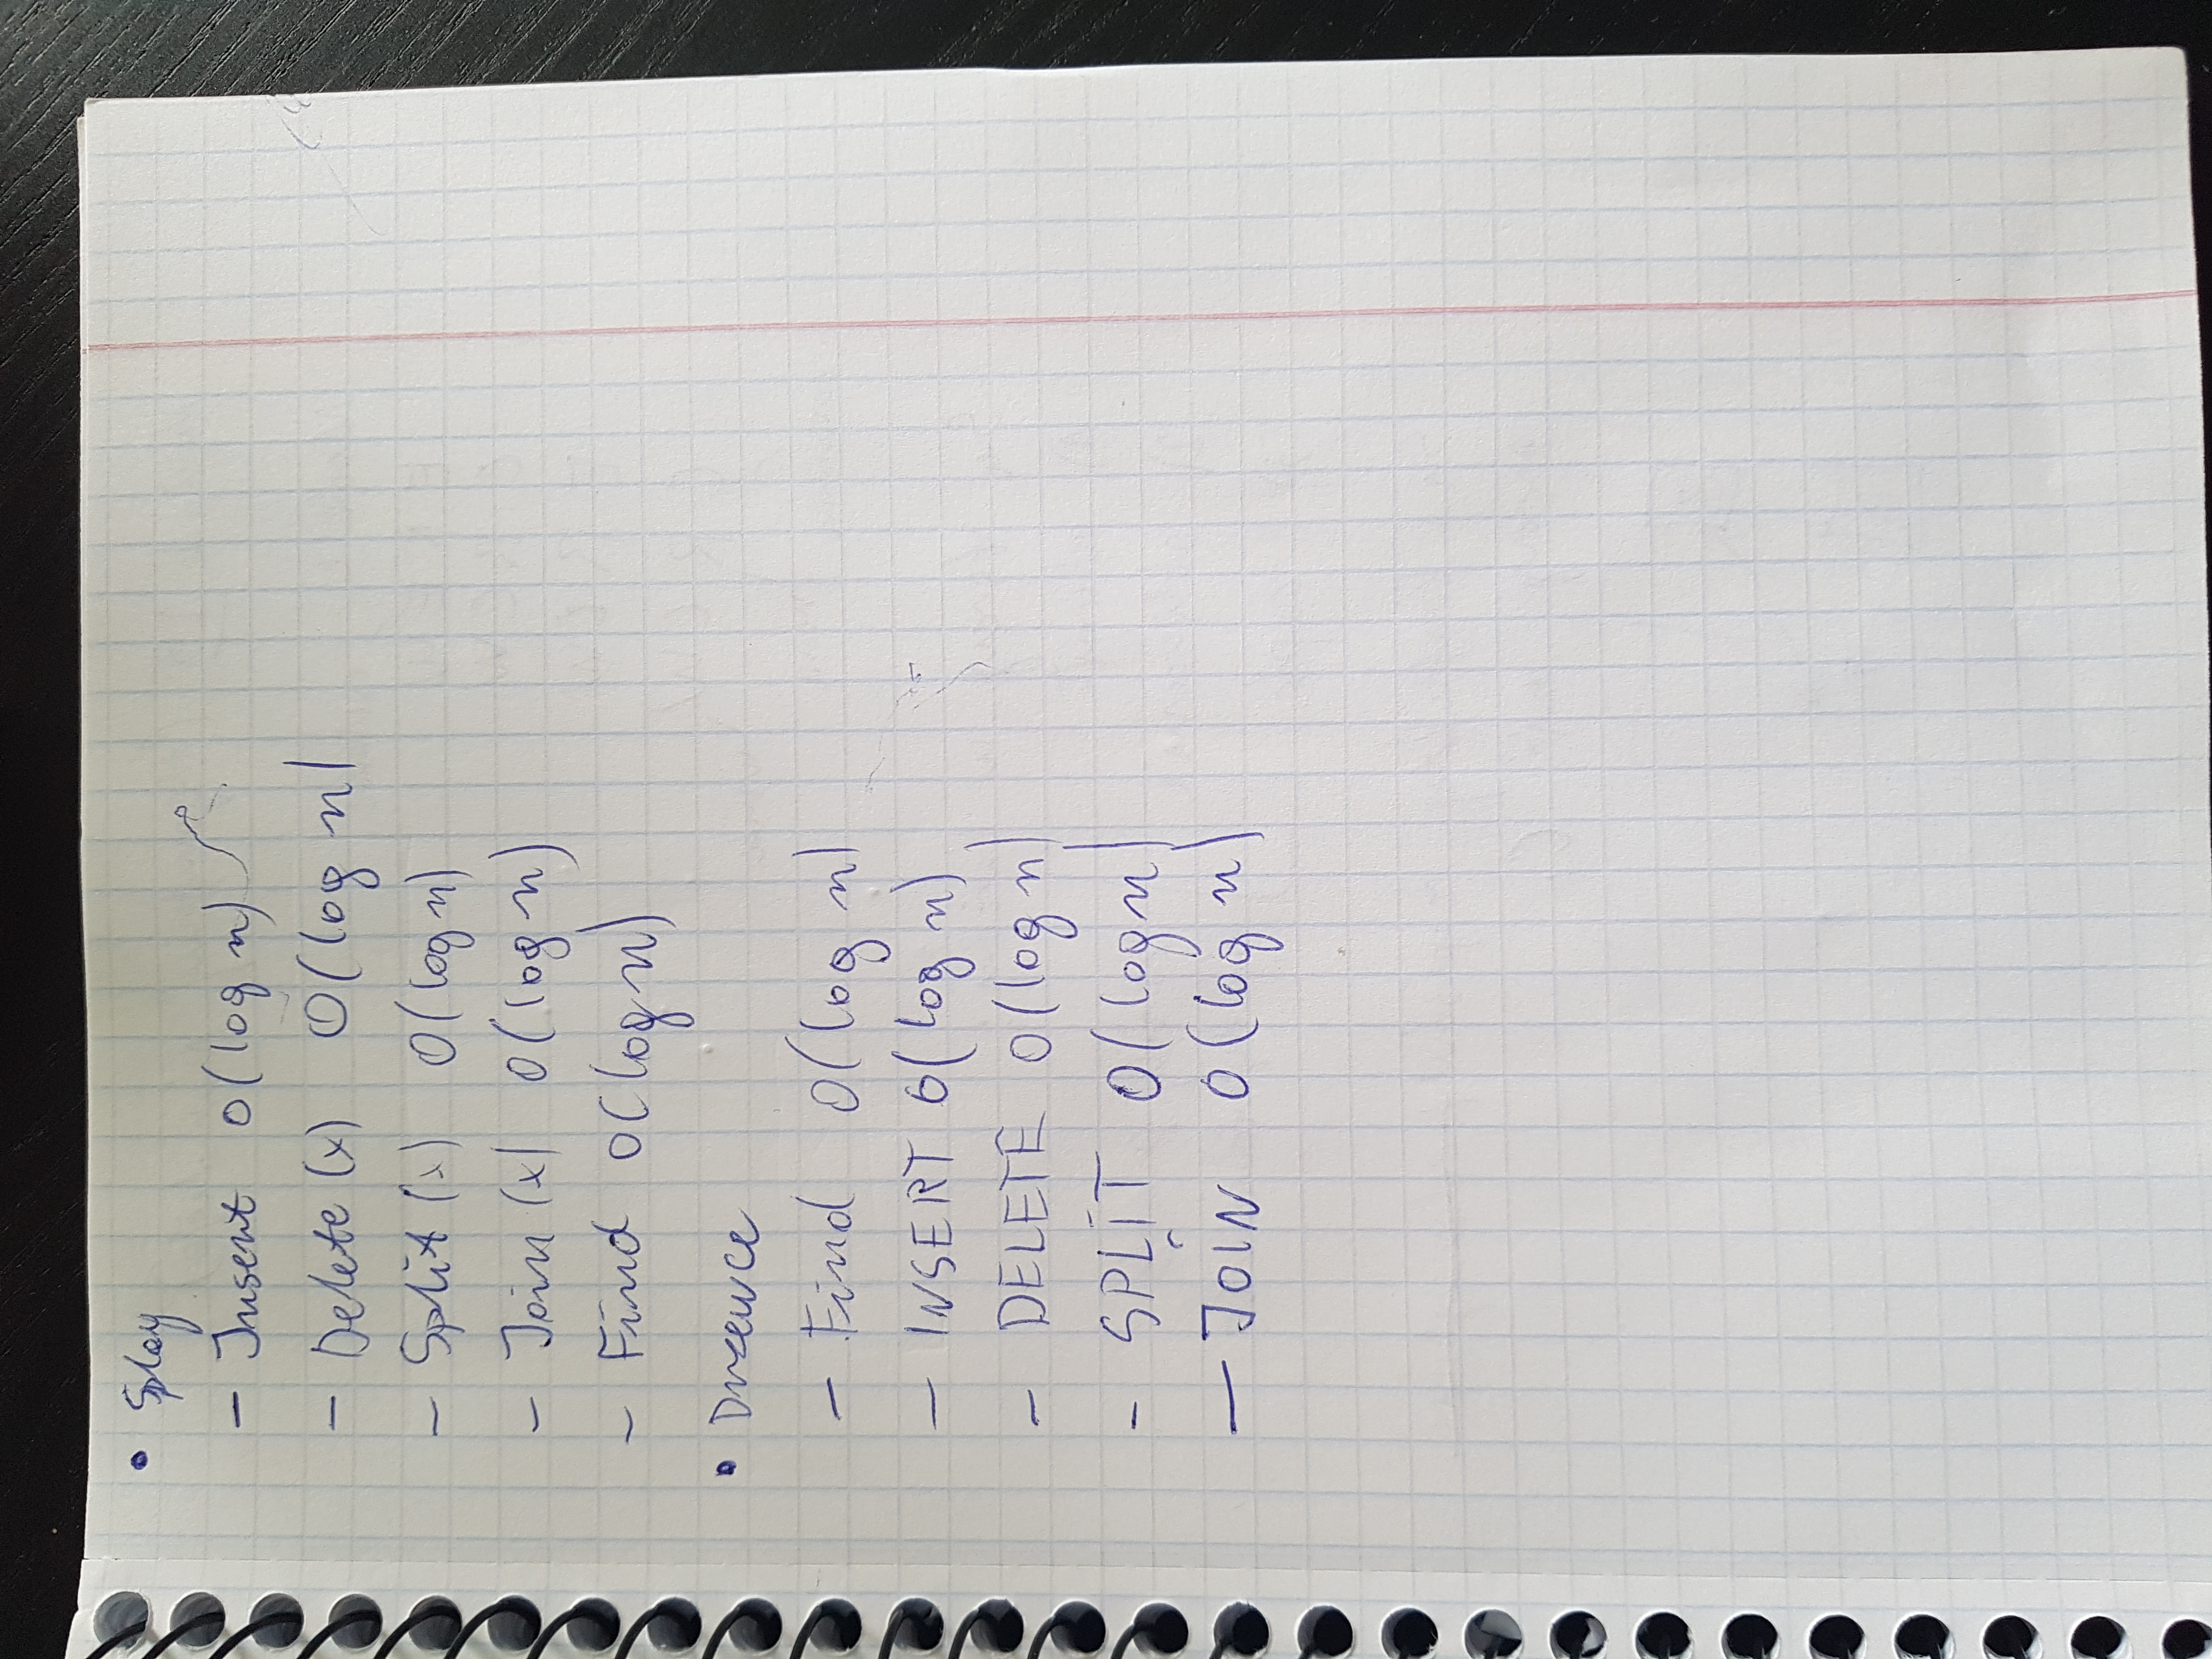 • Splay
- Insert O(log n)
- Delete (x) O(log n)
- Split (x) O(log n)
- Join (x) O(log n)
- Find O(log n)
• Drzewce
- Find O(log n)
- INSERT O(log n)
- DELETE O(log n)
- SPLIT O(log n)
- JOIN O(log n)